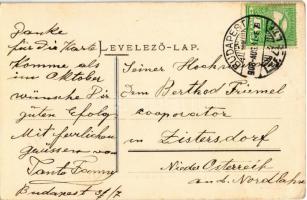 Danke
für die Karte
komme erst
im Oktober
wünsche Dir
guten Erfolg
Mit herzlichen
Grüssen von
Tante Fanny
Budapest 31/7
LEVELEZŐ-LAP.
BUDAPEST
Seiner Hochw
dem Berthod Frimel
cooperator
in Zistersdorf
Nieder Österreich
a. d. Nordbahn